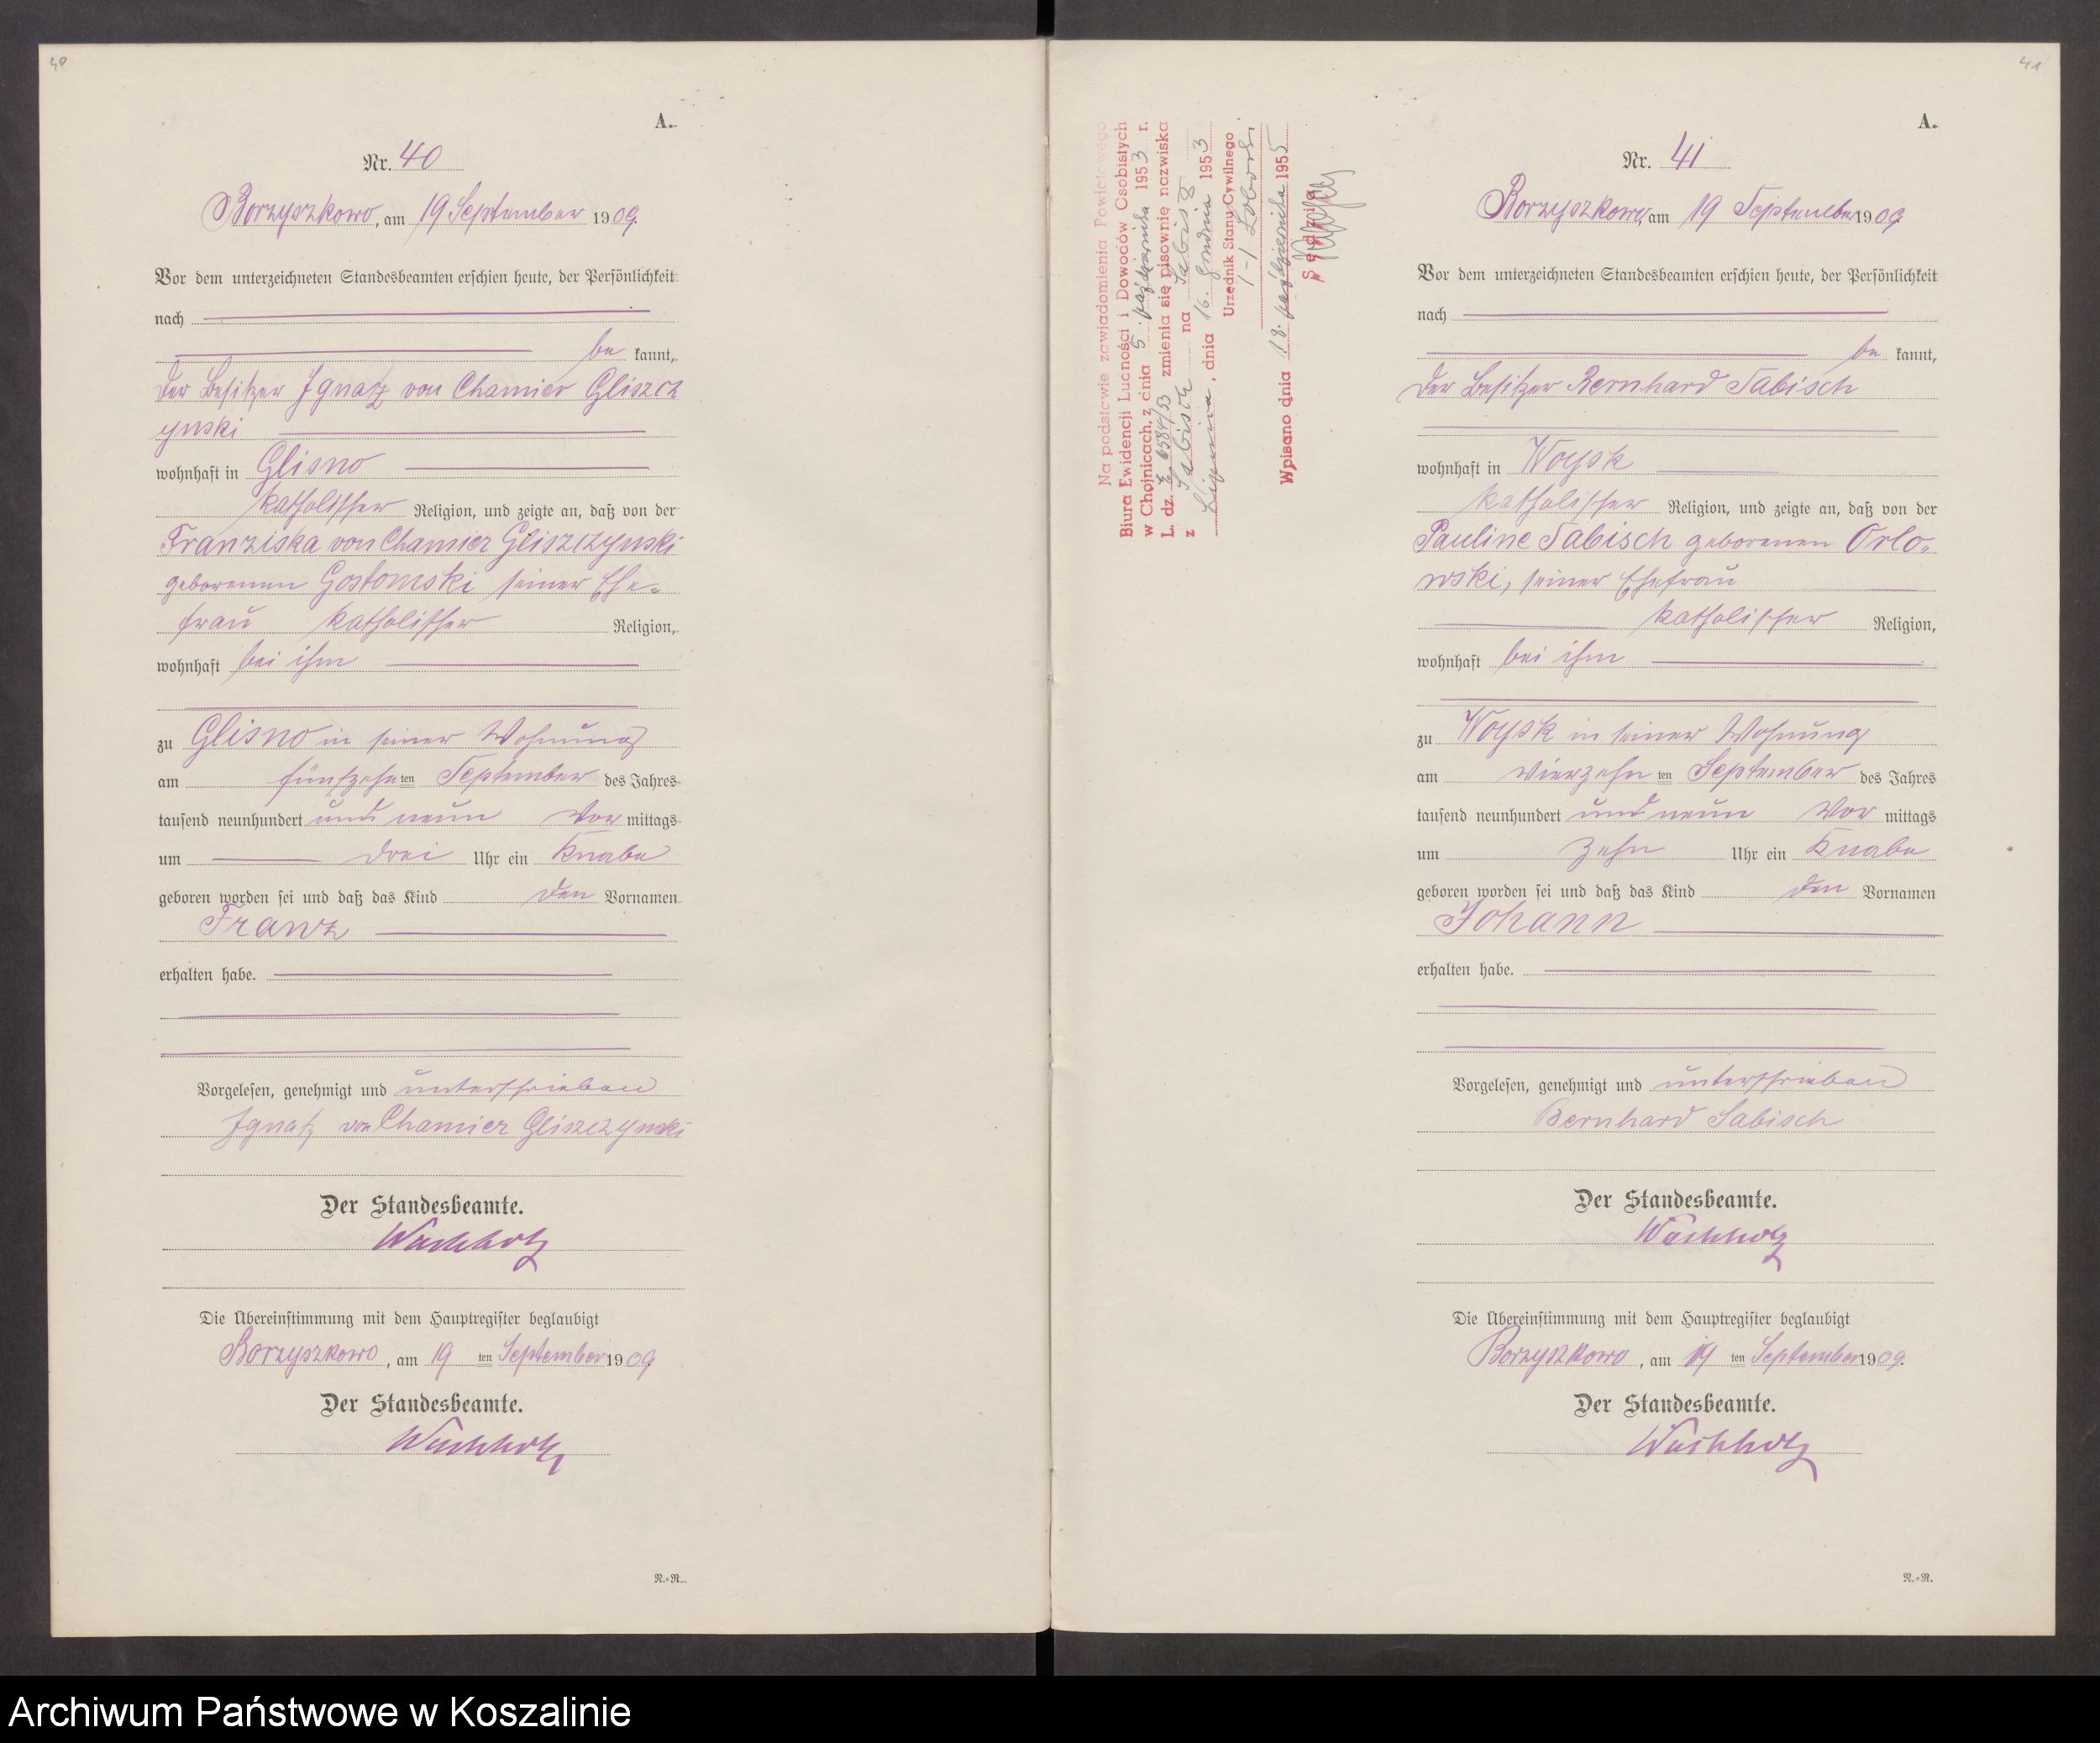 40
A.
Nr. 40
Borzyszkowo, am 19 September 1909.
Vor dem unterzeichneten Standesbeamten erschien heute, der Persönlichkeit
nach
be kannt,
der Besitzer Ignatz von Chamier Gliszcz
ynski
wohnhaft in Glisno
katholischer Religion, und zeigte an, daß von der
Franziska von Chamier Gliszczynski
geborenen Gostomski seiner Ehe-
frau katholischer Religion,
wohnhaft bei ihm
zu Glisno in seiner Wohnung
am fünfzehnten September des Jahres
tausend neunhundert und neun Vor mittags
um drei Uhr ein Knabe
geboren worden sei und daß das Kind den Vornamen
Franz
erhalten habe.
Vorgelesen, genehmigt und unterschrieben
Ignatz von Chamier Gliszczynski
Der Standesbeamte.
Wachholz
Die Übereinstimmung mit dem Hauptregister beglaubigt
Borzyszkowo, am 19 ten September 1909.
Der Standesbeamte.
Wachholz
N.=R.
41
Na podstawie zawiadomienia Powiatowego
Biura Ewidencji Ludności i Dowodów Osobistych
w Chojnicach, z dnia 5. października 1953 r.
L. dz. E 6584/53 zmienia się pisownię nazwiska
z Sabisch na Sabisz
Lipnica, dnia 16. grudnia 1953
Urzędnik Stanu Cywilnego
/-/
Wpisano dnia 18. października 1955
Sędzia
A.
Nr. 41
Borzyszkowo, am 19 September 1909.
Vor dem unterzeichneten Standesbeamten erschien heute, der Persönlichkeit
nach
be kannt,
der Besitzer Bernhard Sabisch
wohnhaft in Woysk
katholischer Religion, und zeigte an, daß von der
Pauline Sabisch geborenen Orlo-
wski, seiner Ehefrau
katholischer Religion,
wohnhaft bei ihm
zu Woysk in seiner Wohnung
am vierzehn ten September des Jahres
tausend neunhundert und neun Vor mittags
um zehn Uhr ein Knabe
geboren worden sei und daß das Kind den Vornamen
Johann
erhalten habe.
Vorgelesen, genehmigt und unterschrieben
Bernhard Sabisch
Der Standesbeamte.
Wachholz
Die Übereinstimmung mit dem Hauptregister beglaubigt
Borzyszkowo, am 19 ten September 1909.
Der Standesbeamte.
Wachholz
N.=R.
Archiwum Państwowe w Koszalinie